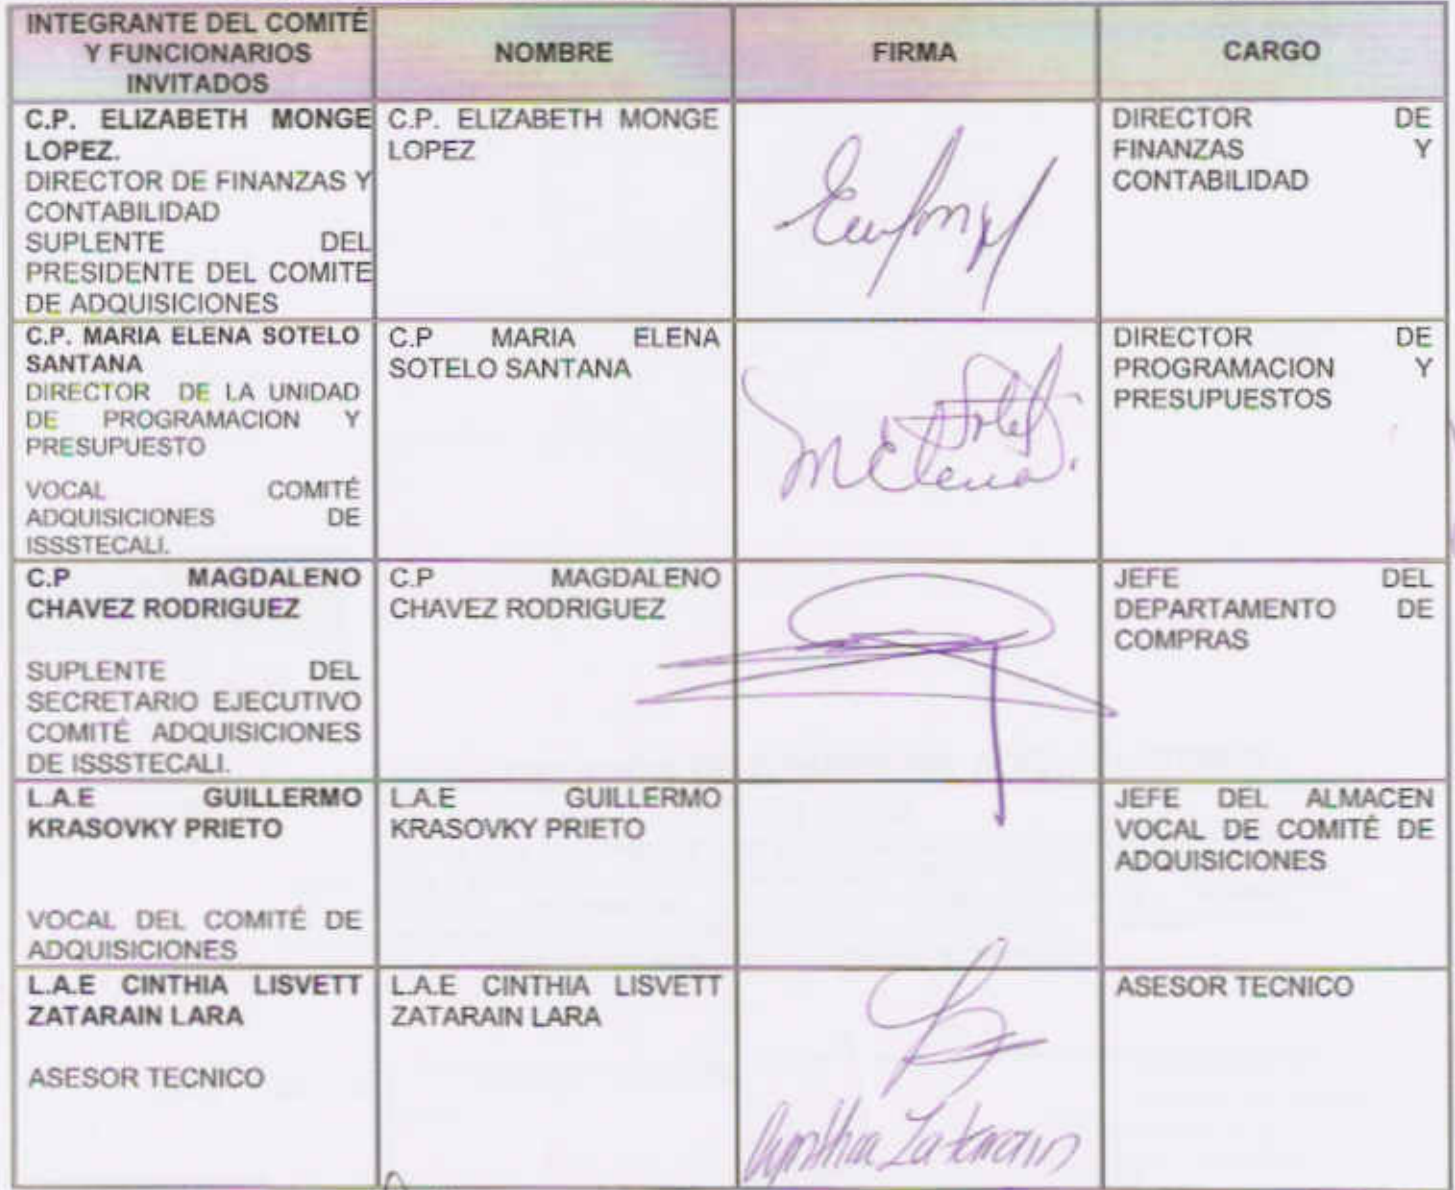 INTEGRANTE DEL COMITÉ
Y FUNCIONARIOS
INVITADOS
NOMBRE
FIRMA
CARGO
C.P. ELIZABETH MONGE
LOPEZ.
DIRECTOR DE FINANZAS Y
CONTABILIDAD
SUPLENTE DEL
PRESIDENTE DEL COMITE
DE ADQUISICIONES
C.P. ELIZABETH MONGE
LOPEZ
DIRECTOR DE
FINANZAS Y
CONTABILIDAD
C.P. MARIA ELENA SOTELO
SANTANA
DIRECTOR DE LA UNIDAD
DE PROGRAMACION Y
PRESUPUESTO
VOCAL COMITÉ
ADQUISICIONES DE
ISSSTECALI.
C.P MARIA ELENA
SOTELO SANTANA
MElena
DIRECTOR DE
PROGRAMACION Y
PRESUPUESTOS
C.P MAGDALENO
CHAVEZ RODRIGUEZ
SUPLENTE DEL
SECRETARIO EJECUTIVO
COMITÉ ADQUISICIONES
DE ISSSTECALI.
C.P MAGDALENO
CHAVEZ RODRIGUEZ
JEFE DEL
DEPARTAMENTO DE
COMPRAS
L.A.E GUILLERMO
KRASOVKY PRIETO
VOCAL DEL COMITÉ DE
ADQUISICIONES
L.A.E GUILLERMO
KRASOVKY PRIETO
JEFE DEL ALMACEN
VOCAL DE COMITÉ DE
ADQUISICIONES
L.A.E CINTHIA LISVETT
ZATARAIN LARA
ASESOR TECNICO
L.A.E CINTHIA LISVETT
ZATARAIN LARA
Cynthia Zatarain
ASESOR TECNICO